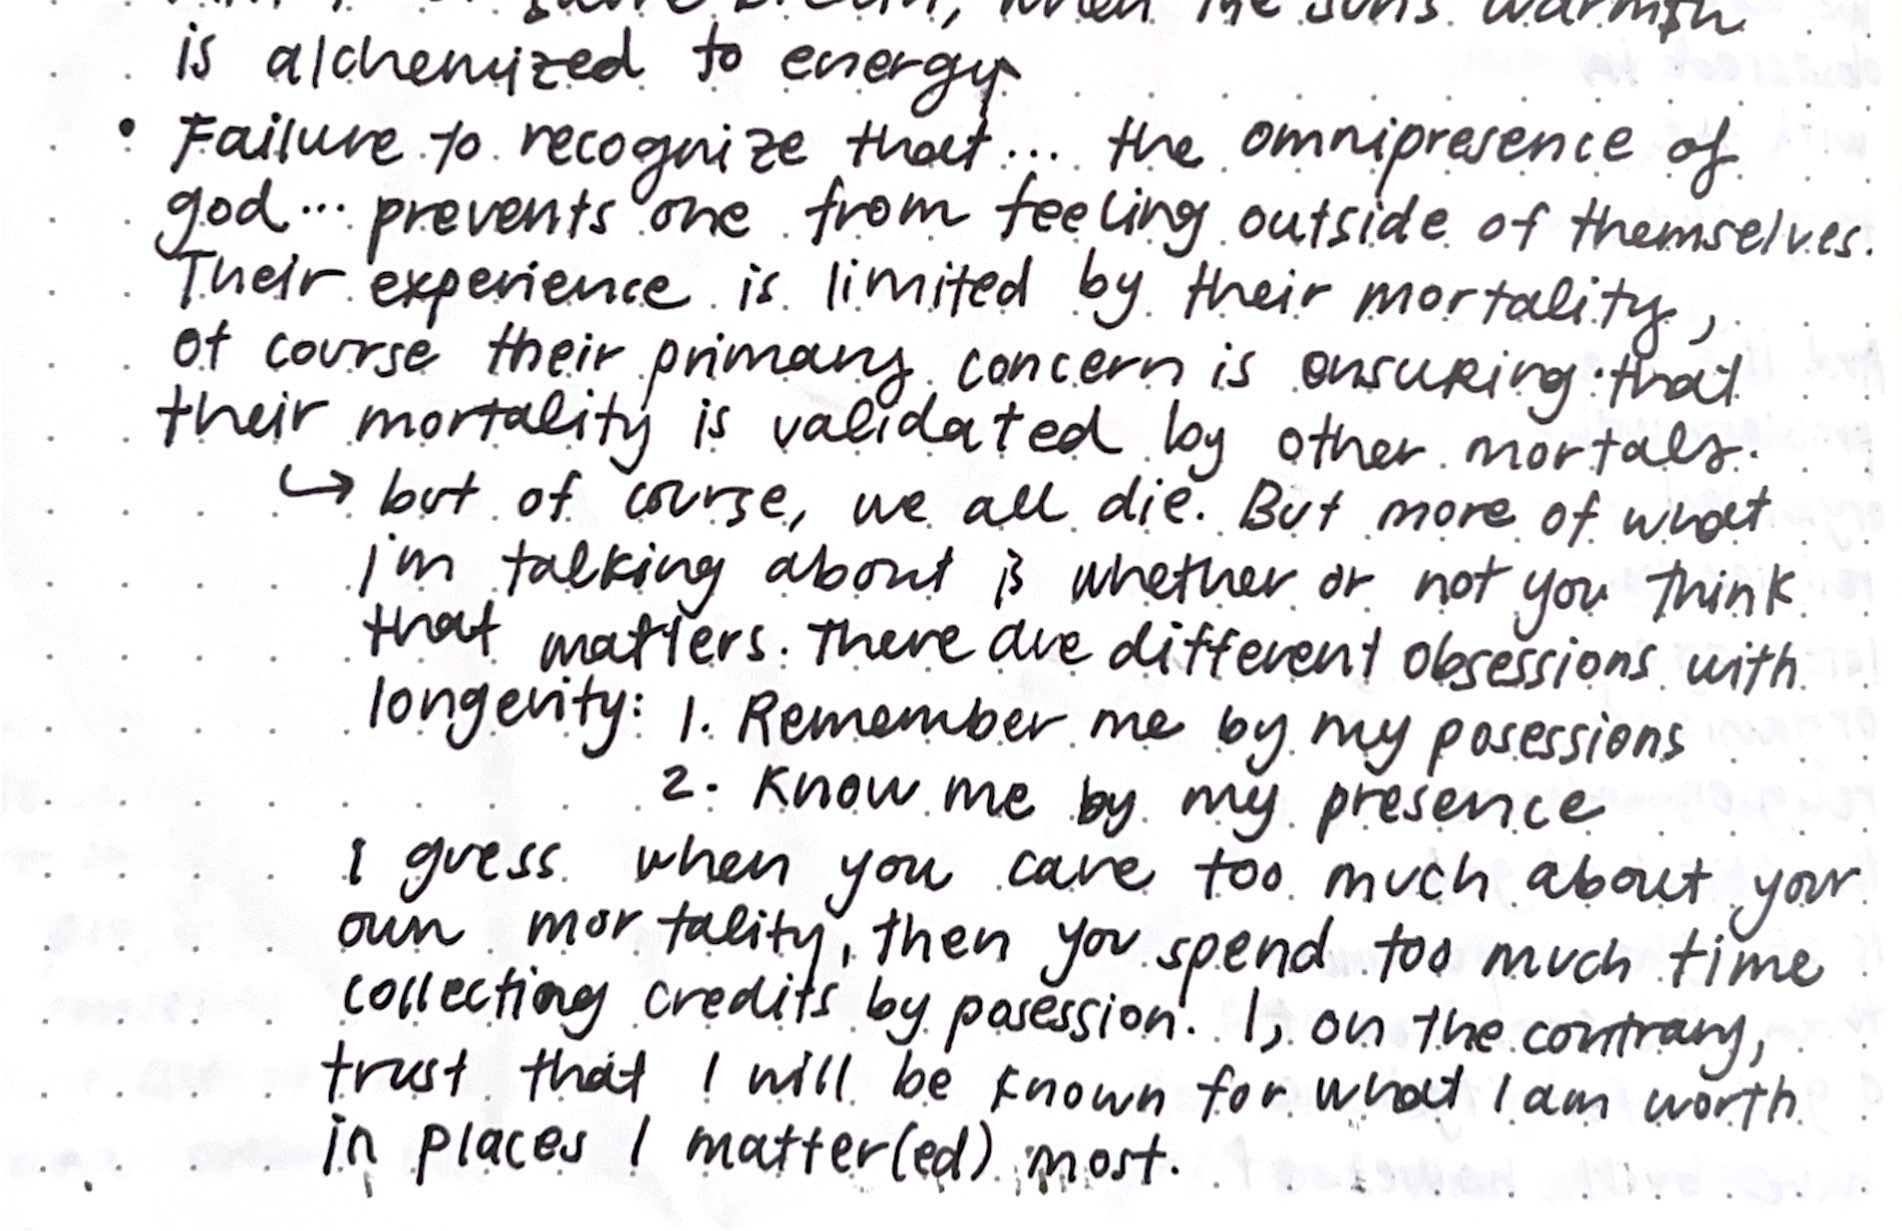 when the sun's warmth
is alchemized to energy
• Failure to recognize that... the omnipresence of
god... prevents one from feeling outside of themselves.
Their experience is limited by their mortality,
of course their primary concern is ensuring that
their mortality is validated by other mortals.
↳ but of course, we all die. But more of what
I'm talking about is whether or not you think
that matters. There are different obsessions with
longevity: 1. Remember me by my posessions
2. Know me by my presence
I guess when you care too much about your
own mortality, then you spend too much time
collecting credits by posession. I, on the contrary,
trust that I will be known for what I am worth
in places I matter(ed) most.